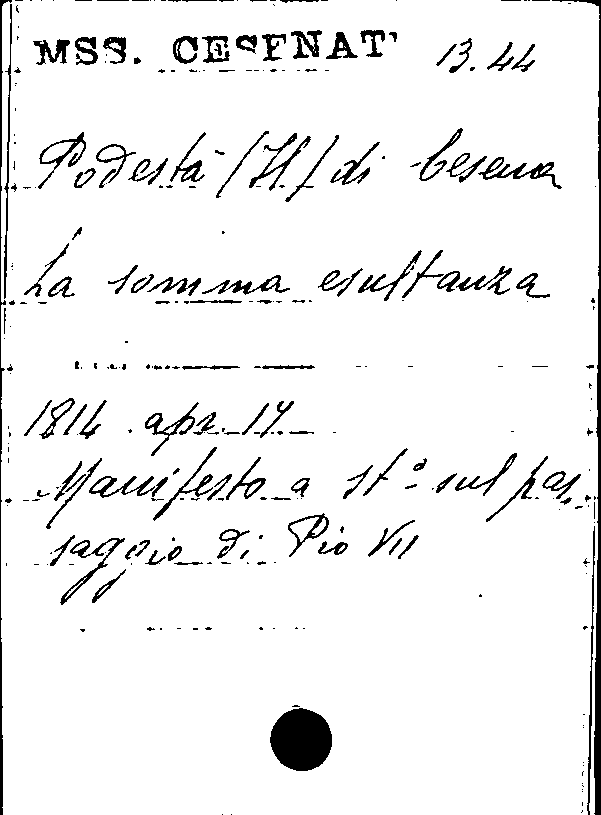 MSS. CESENAT' 13.44
Podestà (Il) di Cesena
La somma esultanza
1814 apr. 17
Manifesto a stº sul pas
saggio di Pio VII